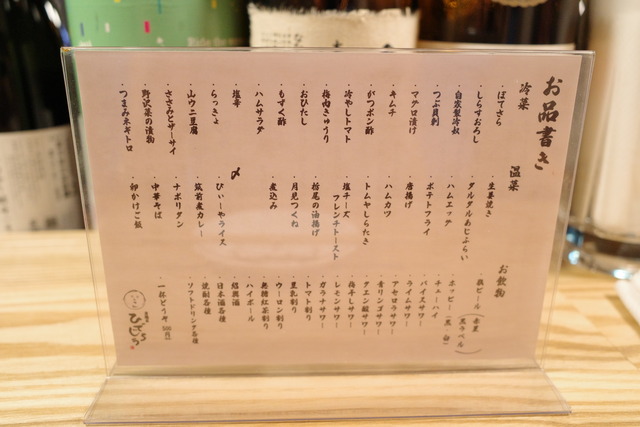 お品書き
冷菜
・ぽてさら
・しらすおろし
・自家製冷奴
・つぶ貝刺
・マグロ漬け
・キムチ
・がつポン酢
・冷やしトマト
・梅肉きゅうり
・おひたし
・もずく酢
・ハムサラダ
・塩辛
・らっきょ
・山ウニ豆腐
・ささみとザーサイ
・野沢菜の漬物
・つまみネギトロ
温菜
・生姜焼き
・タルタルあじふらい
・ハムエッグ
・ポテトフライ
・唐揚げ
・ハムカツ
・トムヤしらたき
・塩チーズ
フレンチトースト
・栃尾の油揚げ
・月見つくね
・煮込み
〆
・びぃーやライス
・筑前煮カレー
・ナポリタン
・中華そば
・卵かけご飯
お飲物
・瓶ビール（赤星
黒ラベル）
・ホッピー（黒 白）
・チューハイ
・バイスサワー
・ライムサワー
・アセロラサワー
・青リンゴサワー
・クエン酸サワー
・梅干しサワー
・レモンサワー
・ガラナサワー
・トマト割り
・豆乳割り
・ウーロン割り
・無糖紅茶割り
・ハイボール
・紹興酒
・日本酒各種
・焼酎各種
・ソフトドリンク各種
・一杯どうヤ 500円